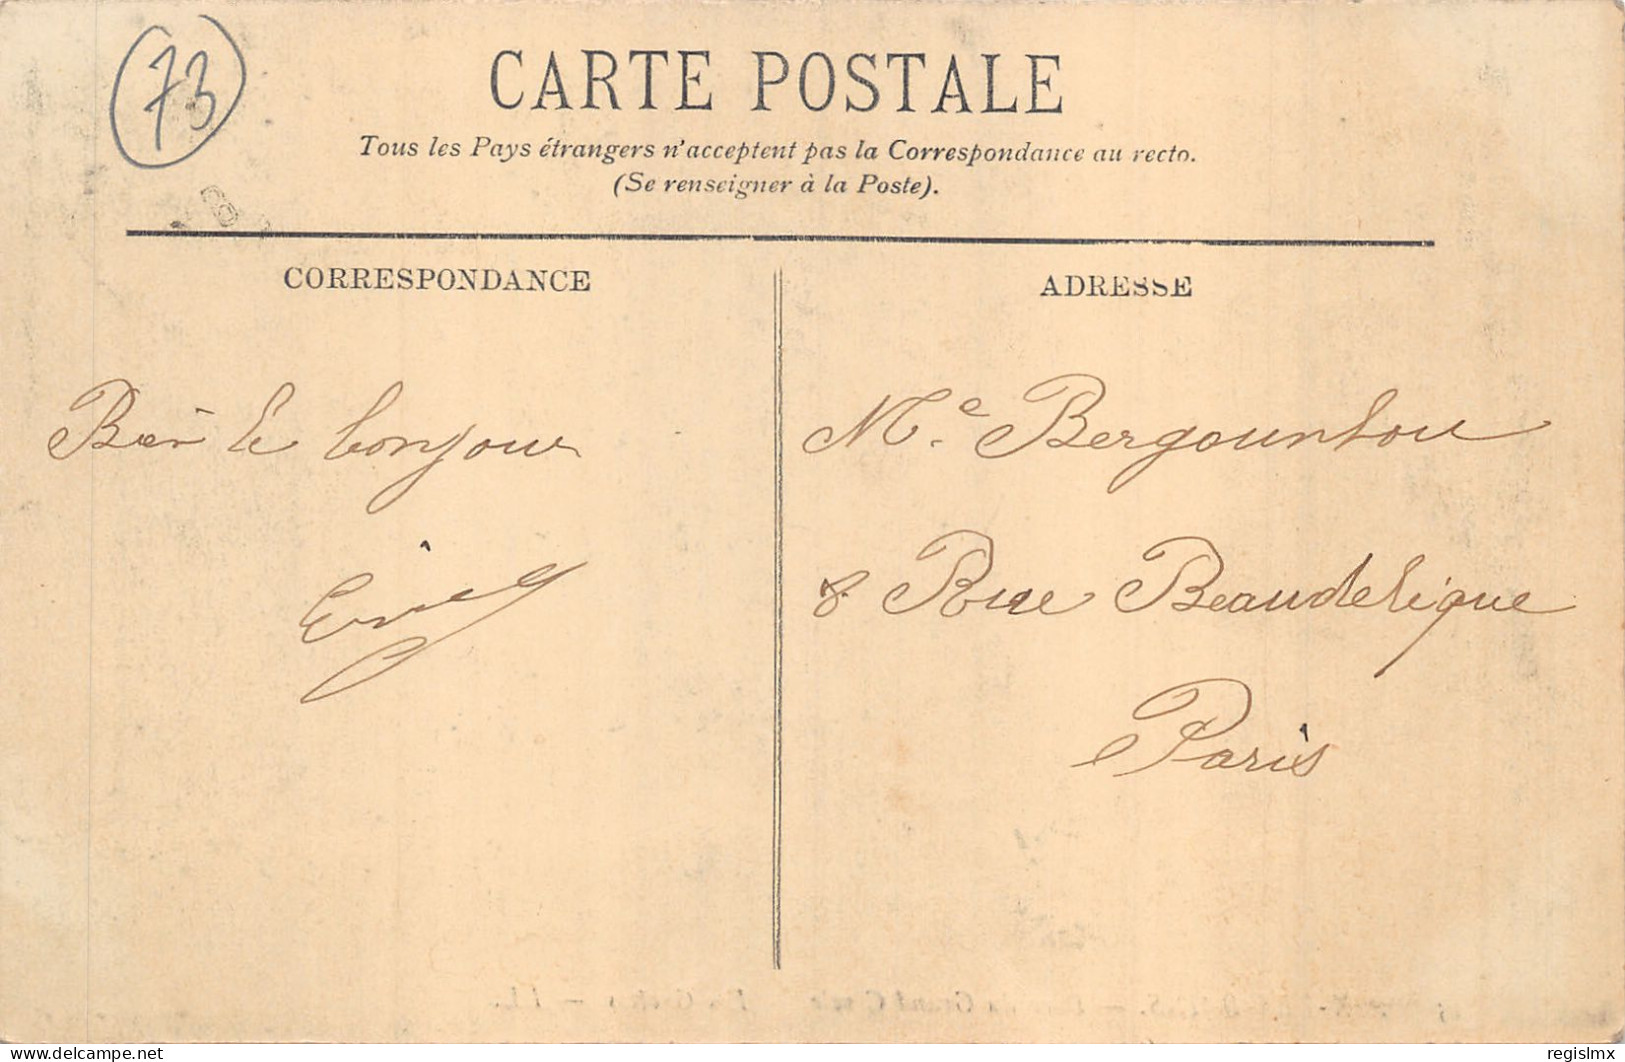 73
CARTE POSTALE
Tous les Pays étrangers n'acceptent pas la Correspondance au recto.
(Se renseigner à la Poste).
CORRESPONDANCE
Bien le bonjour
ADRESSE
Me Bergounhou
8. Rue Beaudelique
Paris
delcampe.net
regislmx